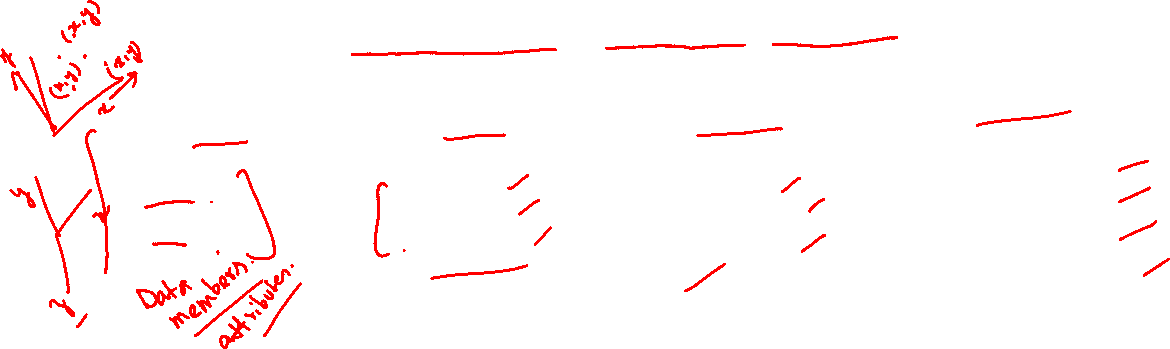 (x,y)
(x,y)
(x,y)
x
y
Data
members.
attributes.